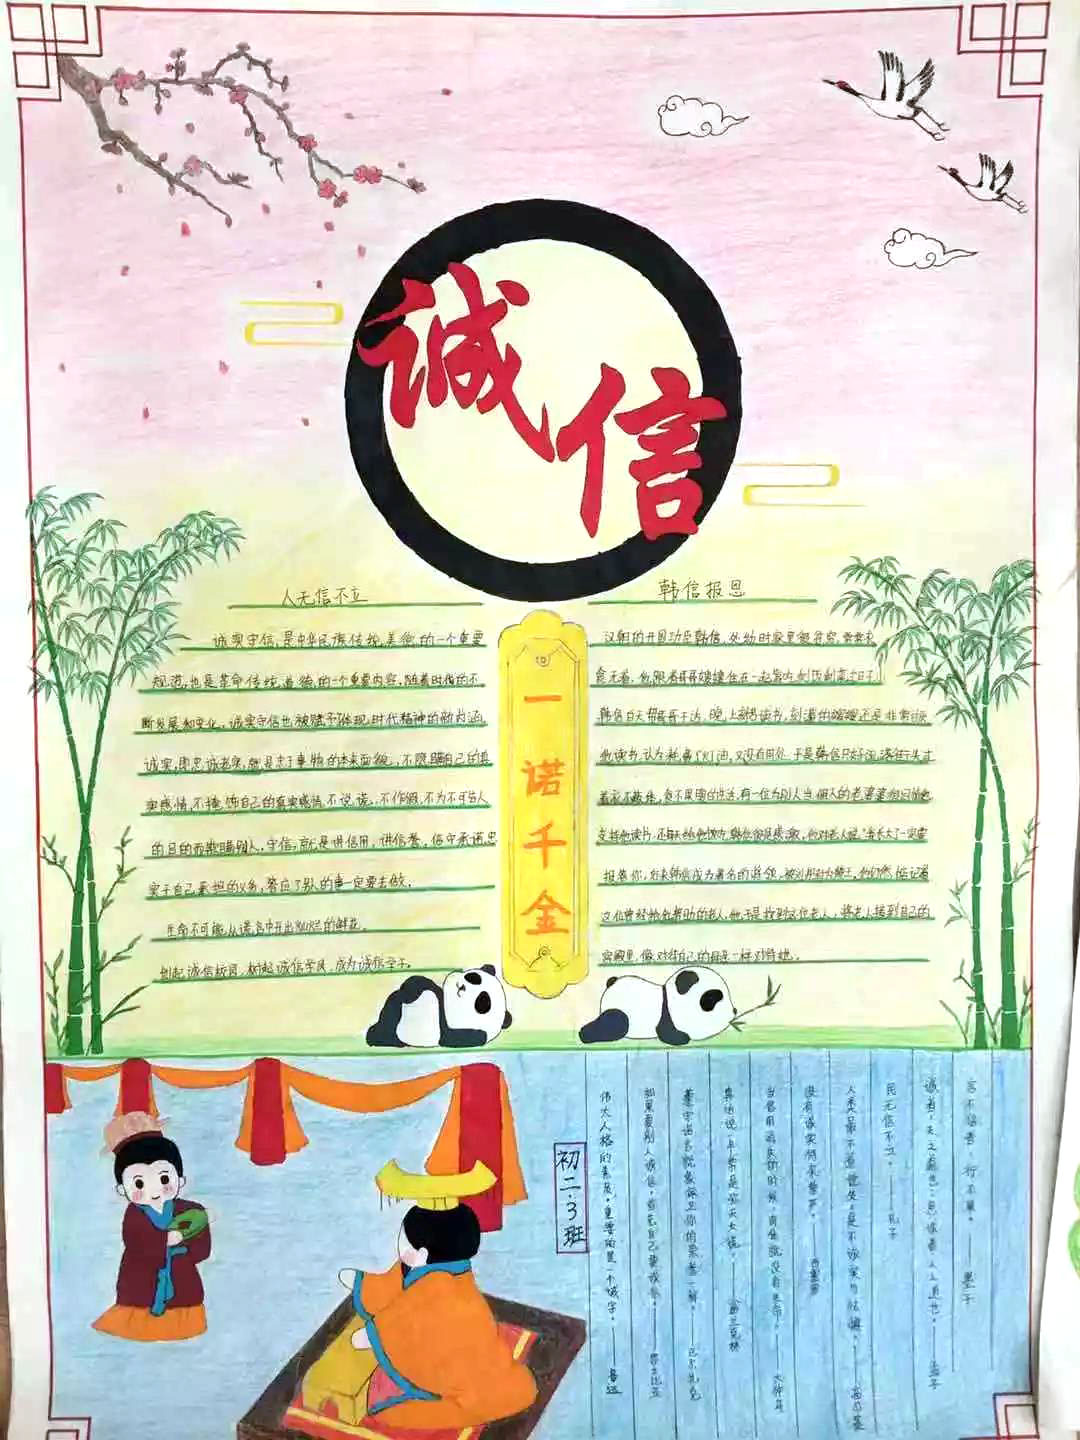 诚信
人无信不立
诚实守信,是中华民族传统美德的一个重要
规范,也是革命传统道德的一个重要内容,随着时代的不
断发展和变化,诚实守信也被赋予体现时代精神的新内涵
诚实,即忠诚老实,就是忠于事物的本来面貌,不隐瞒自己的真
实感情,不掩饰自己的真实感情,不说谎,不作假,不为不可告人
的目的而欺瞒别人,守信,就是讲信用,讲信誉,信守承诺忠
实于自己承担的义务,答应了别的事一定要去做。
生命不可能从谎言中开出灿烂的鲜花。
创起诚信校园,树起诚信学风,成为诚信学子。
一诺千金
韩信报恩
汉朝的开国功臣韩信,幼时家里很贫穷,常常衣
食无着,他跟着哥哥嫂嫂住在一起,靠吃剩饭剩菜过日子
韩信白天帮哥哥干活,晚上刻苦读书,刻薄的嫂嫂还是非常讨厌
他读书,认为耗费了灯油,又没有用处,于是韩信只好流落街头过
着衣不蔽体,食不果腹的生活,有一位为别人当佣人的老婆婆很同情他
支持他读书,还每天给他饭吃,韩信很感激,他对老人说:我长大了一定要
报答你,后来韩信成为著名的将领,被刘邦封为楚王,他仍然惦记着
这位曾经给他帮助的老人,他于是找到这位老人,将老人接到自己的
宫殿里,像对待自己的母亲一样对待她。
言不信者,行不果。——墨子
诚者,天之道也;思诚者,人之道也。——孟子
民无信不立。——孔子
人类最不道德处,是不诚实与怯懦。——高尔基
没有诚实何来尊严。——西塞罗
当信用消失的时候,肉体就没有生命。——大仲马
莫说一半常是弥天大谎。——富兰克林
遵守诺言就象保卫你的荣誉一样。——巴尔扎克
如果要别人诚信,首先自己要诚信。——莎士比亚
伟大人格的素质,重要的是一个诚字。——鲁迅
初二·3班